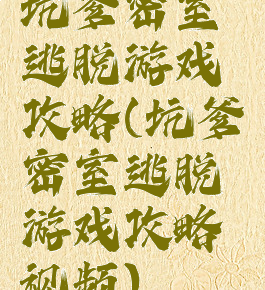 坑爹密室
逃脱游戏
攻略(坑爹
密室逃脱
游戏攻略
视频)